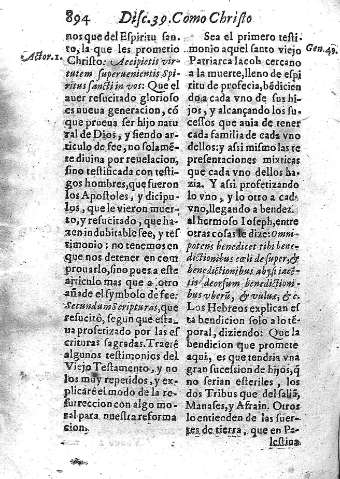 894 Disc. 39. Como Christo
nos que del Espiritu san-
to, la que les prometio
Actor. 1. Christo: Accipietis vir-
tutem superuenientis Spi-
ritus sancti in vos: Que el
auer resucitado glorioso
es nueua generacion, cõ
que prueua ser hijo natu-
ral de Dios, y siendo ar-
ticulo de fee, no solamẽ-
te diuina por reuelacion,
sino testificada con testi-
gos hombres, que fueron
los Apostoles, y dicipu-
los, que le vieron muer-
to, y resucitado, que ha-
zen indubitable fee, y tes
timonio: no tenemos en
que nos detener en com
prouarlo, sino pues a este
articulo mas que a otro
añade el symbolo de fee:
Secundum Scripturas, que
resucitó, segun que esta-
ua profetizado por las es
crituras sagradas. Traeré
algunos testimonios del
Viejo Testamento, y no
los muy repetidos, y ex-
plicaré el modo de la re-
surreccion con algo mo-
ral para nuestra reforma
cion.
Sea el primero testi-
monio aquel santo viejo Gen. 49.
Patriarca Iacob cercano
a la muerte, lleno de espi
ritu de profecia, bẽdicien
do a cada vno de sus hi-
jos, y alcançando los su-
cessos que auia de tener
cada familia de cada vno
dellos: y asi mismo las re
presentaciones misticas
que cada vno dellos ha-
zia. Y asi profetizando
lo vno, y lo otro a cada
vno, llegando a bendez.
al hermoso Ioseph, entre
otras cosas le dize: Omni-
potens benedicet tibi bene-
dictionibus cœli desuper, &
benedictionibus abyssi iacẽ-
tis deorsum benedictioni-
bus vberũ, & vuluæ, &c.
Los Hebreos explican es
ta bendicion solo a lo tẽ-
poral, diziendo: Que la
bendicion que promete
aqui, es que tendria vna
gran sucession de hijos, q̃
no serian esteriles, los
dos Tribus que del saliã,
Manases, y Afrain. Otros
lo entienden de las suer-
tes de tierra, que en Pa-
lestina